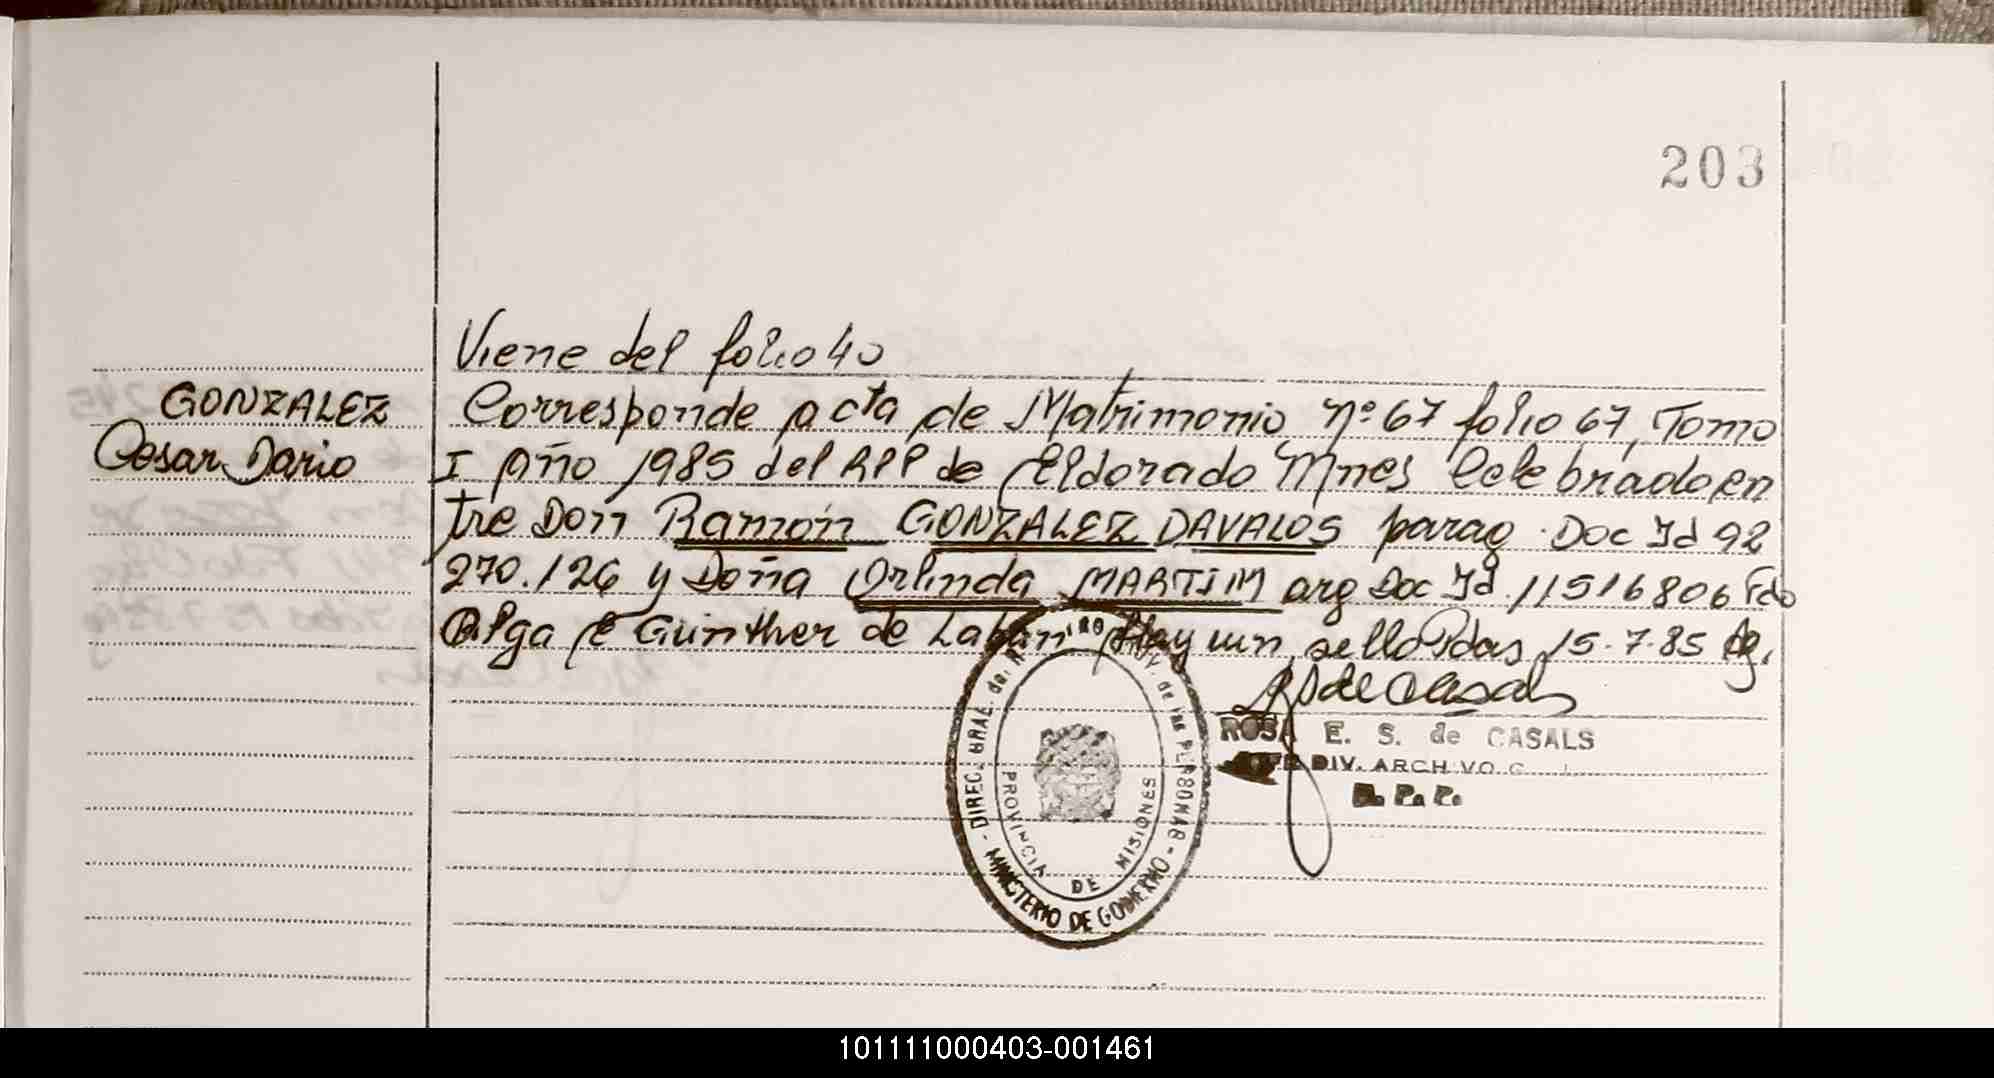 203
Viene del folio 40
GONZALEZ
Cesar Dario
Corresponde acta de Matrimonio nº 67 folio 67, Tomo
I año 1985 del RPP de Eldorado Mnes Celebrado en
tre Don Ramón GONZALEZ DAVALOS parag. Doc Id 92
270.126 y Doña Orlinda MARTIM arg Doc Id. 11516806 Fdo
Olga E Günther de Laban Hay un sello Pdas 15.7.85
ROSA E. S. de CASALS
DIV. ARCH
R. P. P.
MINISTERIO DE GOBIERNO
PROVINCIA DE MISIONES
101111000403-001461